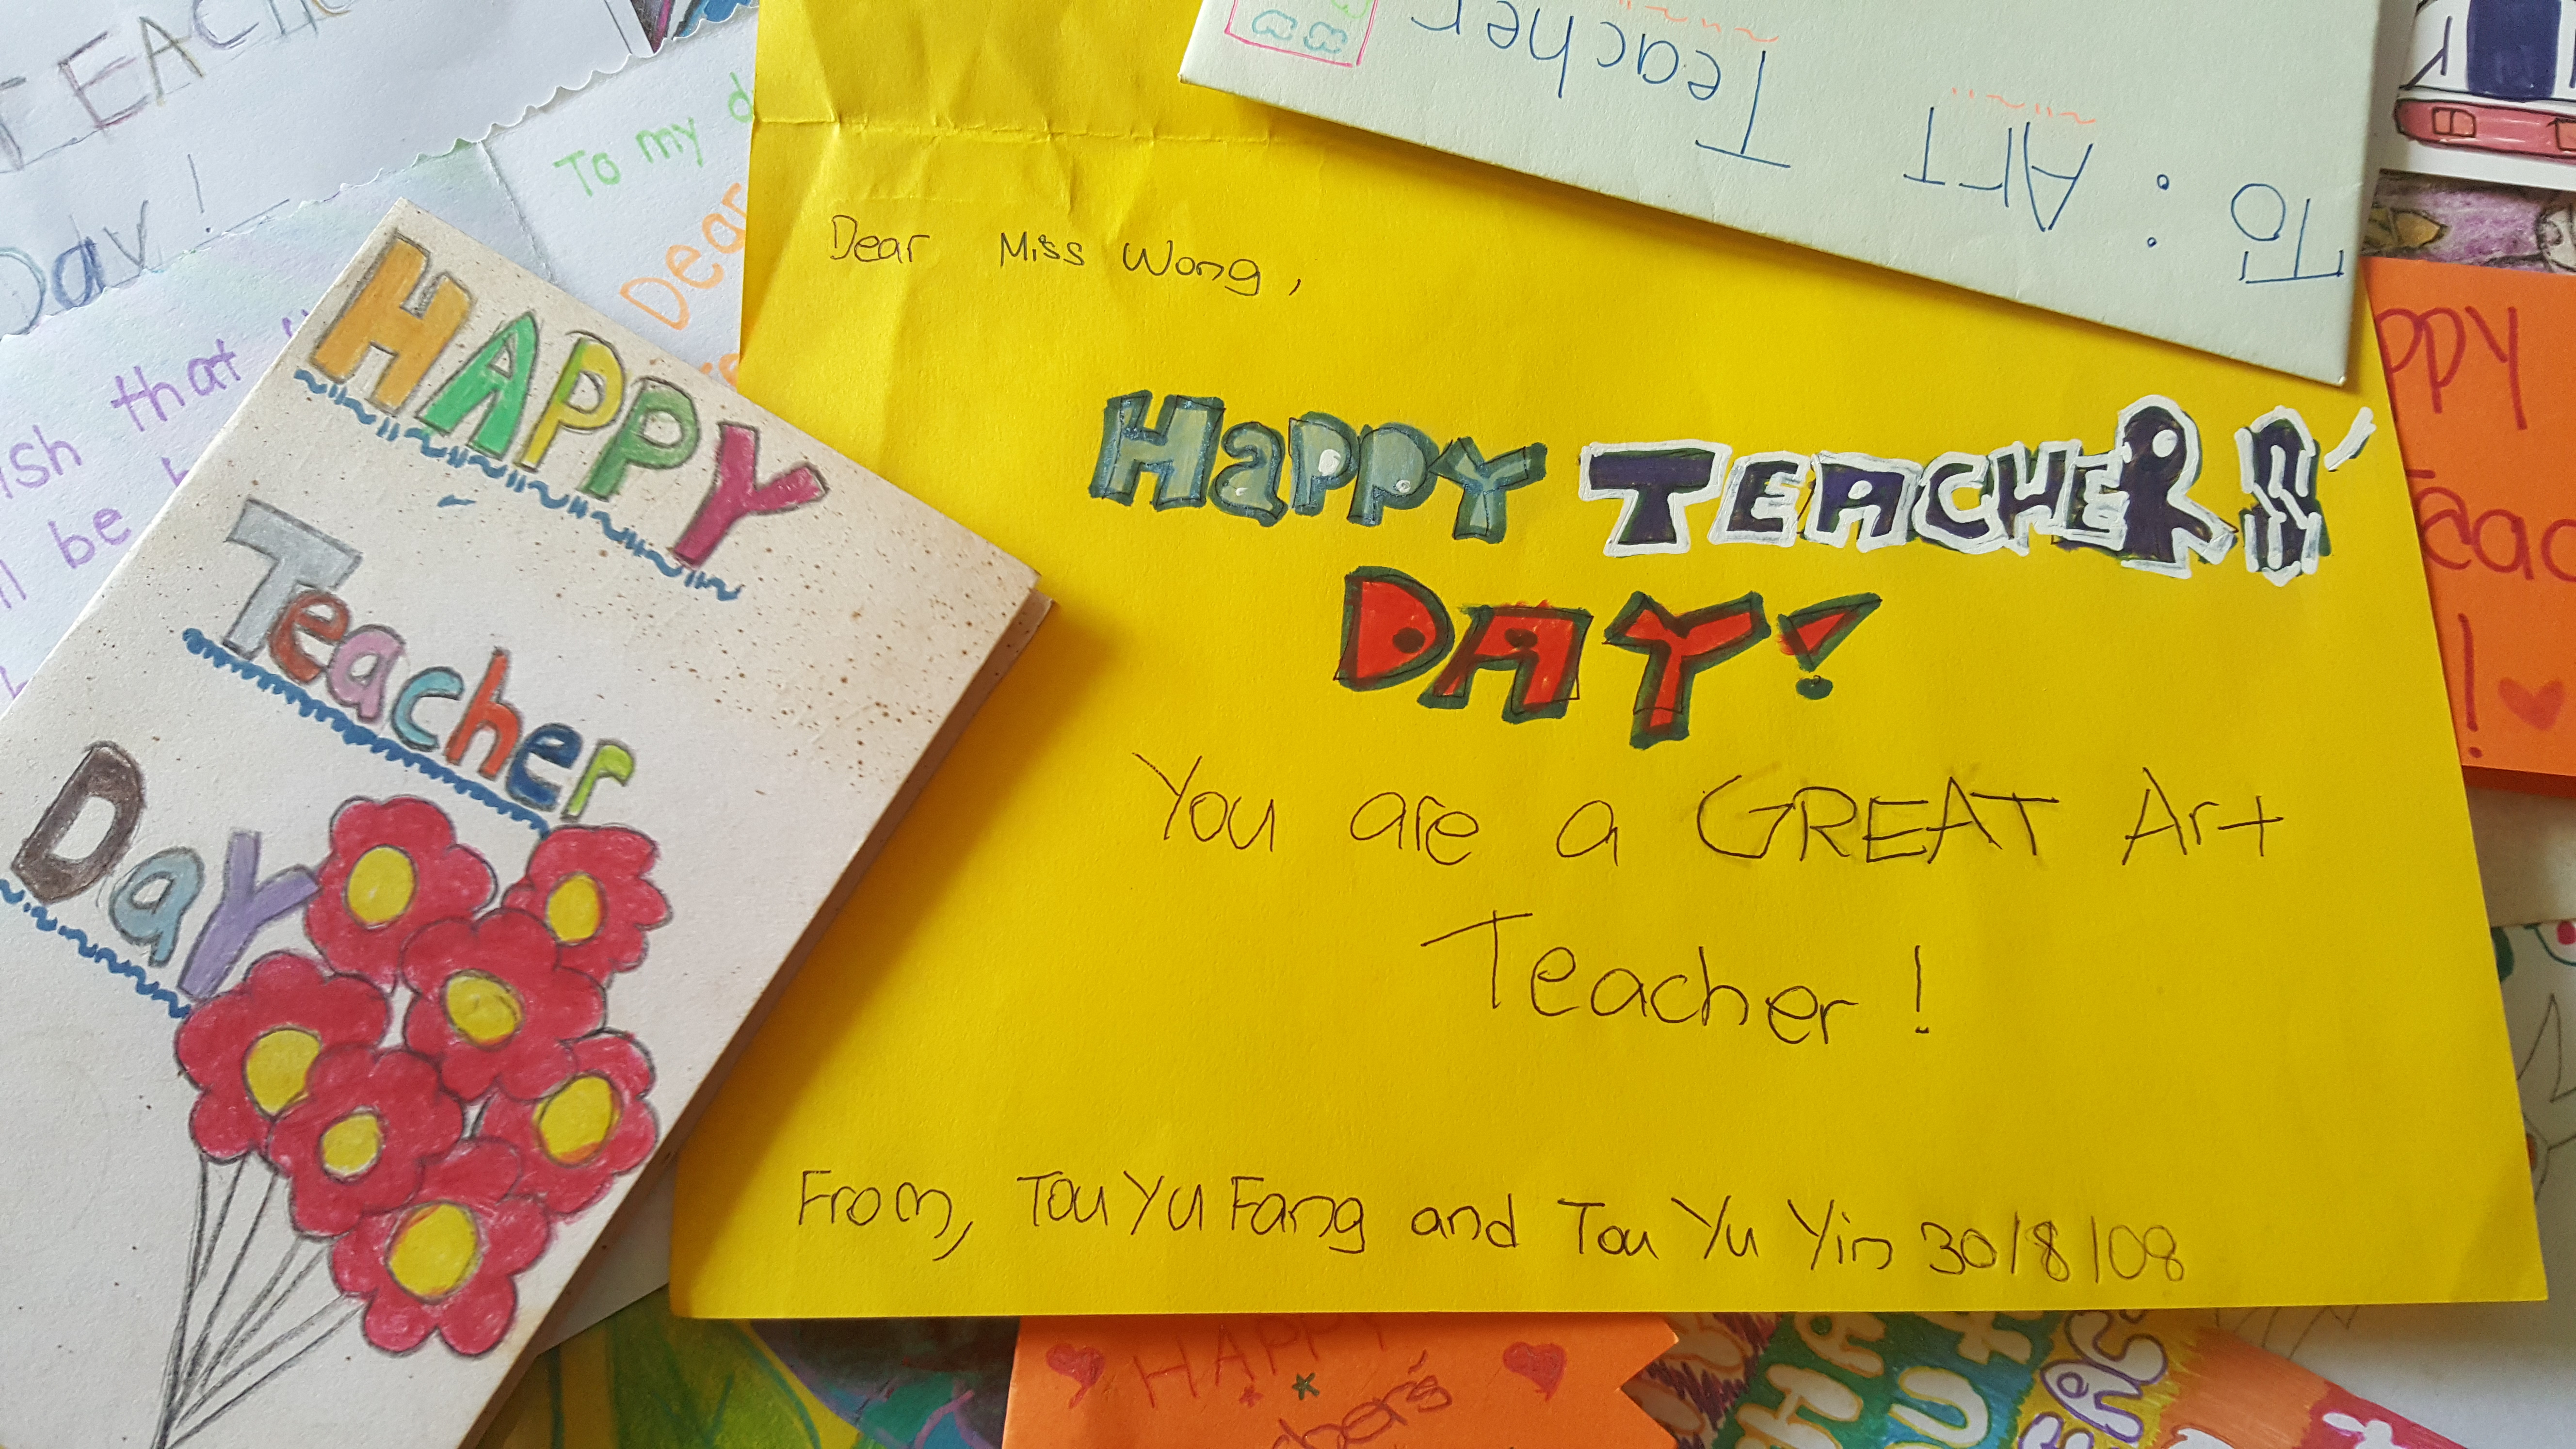 TEACH
Day!
To my d
Dear
ish that
be
HAPPY
Teacher
Day
To: ART Teacher
Dear Miss Wong,
Happy TEACHERS'
DAY!
You are a GREAT Art
Teacher!
From, Tou Yu Fang and Tou Yu Yin 30/8/08
ppy
Teac
!
HAPPY
cher's